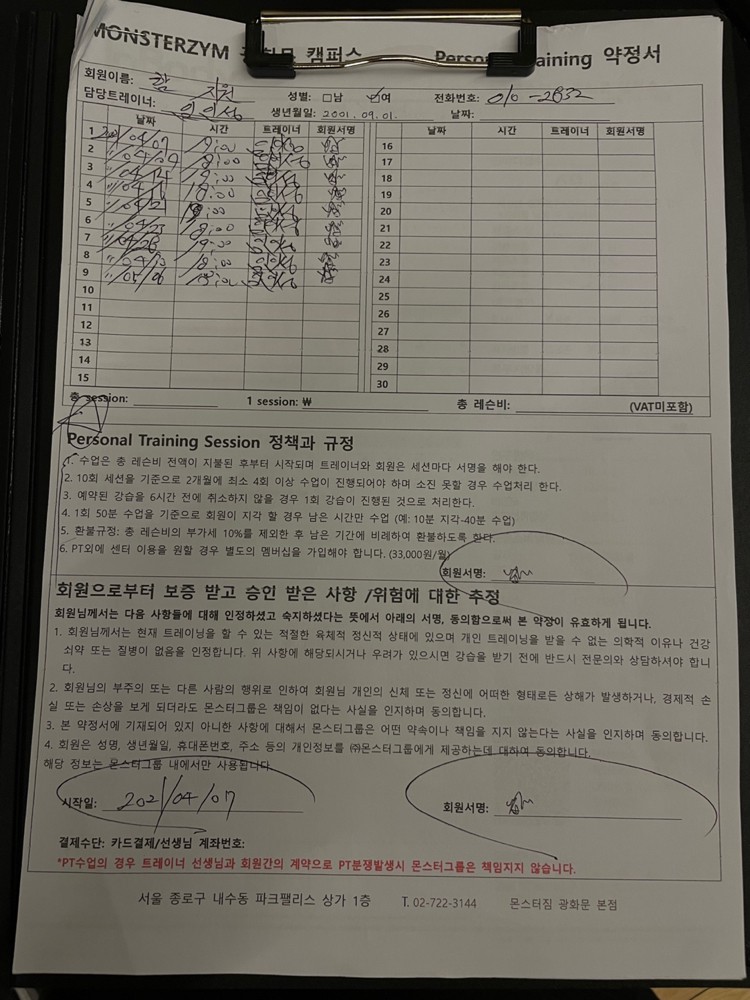 MONSTERZYM 캠퍼스 Personal Training 약정서
회원이름: 지원 성별: □남 ☑여 전화번호: 010-2832
담당트레이너: 생년월일: 2001.09.01. 날짜:
날짜 시간 트레이너 회원서명 날짜 시간 트레이너 회원서명
1 04/07 16
2 04/09 8:00 17
3 18
4 18:00 19
5 20
6 04/23 21
7 22
8 18:00 23
9 05/06 24
10 25
11 26
12 27
13 28
14 29
15 30
총 session: 1 session: ₩ 총 레슨비: (VAT미포함)
Personal Training Session 정책과 규정
1. 수업은 총 레슨비 전액이 지불된 후부터 시작되며 트레이너와 회원은 세션마다 서명을 해야 한다.
2. 10회 세션을 기준으로 2개월에 최소 4회 이상 수업이 진행되어야 하며 소진 못할 경우 수업처리 한다.
3. 예약된 강습을 6시간 전에 취소하지 않을 경우 1회 강습이 진행된 것으로 처리한다.
4. 1회 50분 수업을 기준으로 회원이 지각 할 경우 남은 시간만 수업 (예: 10분 지각-40분 수업)
5. 환불규정: 총 레슨비의 부가세 10%를 제외한 후 남은 기간에 비례하여 환불하도록 한다.
6. PT외에 센터 이용을 원할 경우 별도의 멤버십을 가입해야 합니다. (33,000원/월)
회원서명:
회원으로부터 보증 받고 승인 받은 사항 /위험에 대한 추정
회원님께서는 다음 사항들에 대해 인정하셨고 숙지하셨다는 뜻에서 아래의 서명, 동의함으로써 본 약정이 유효하게 됩니다.
1. 회원님께서는 현재 트레이닝을 할 수 있는 적절한 육체적 정신적 상태에 있으며 개인 트레이닝을 받을 수 없는 의학적 이유나 건강
쇠약 또는 질병이 없음을 인정합니다. 위 사항에 해당되시거나 우려가 있으시면 강습을 받기 전에 반드시 전문의와 상담하셔야 합니
다.
2. 회원님의 부주의 또는 다른 사람의 행위로 인하여 회원님 개인의 신체 또는 정신에 어떠한 형태로든 상해가 발생하거나, 경제적 손
실 또는 손상을 보게 되더라도 몬스터그룹은 책임이 없다는 사실을 인지하며 동의합니다.
3. 본 약정서에 기재되어 있지 아니한 사항에 대해서 몬스터그룹은 어떤 약속이나 책임을 지지 않는다는 사실을 인지하며 동의합니다.
4. 회원은 성명, 생년월일, 휴대폰번호, 주소 등의 개인정보를 ㈜몬스터그룹에게 제공하는데 대하여 동의합니다.
해당 정보는 몬스터그룹 내에서만 사용됩니다.
시작일: 2021/04/07 회원서명:
결제수단: 카드결제/선생님 계좌번호:
*PT수업의 경우 트레이너 선생님과 회원간의 계약으로 PT분쟁발생시 몬스터그룹은 책임지지 않습니다.
서울 종로구 내수동 파크팰리스 상가 1층 T. 02-722-3144 몬스터짐 광화문 본점